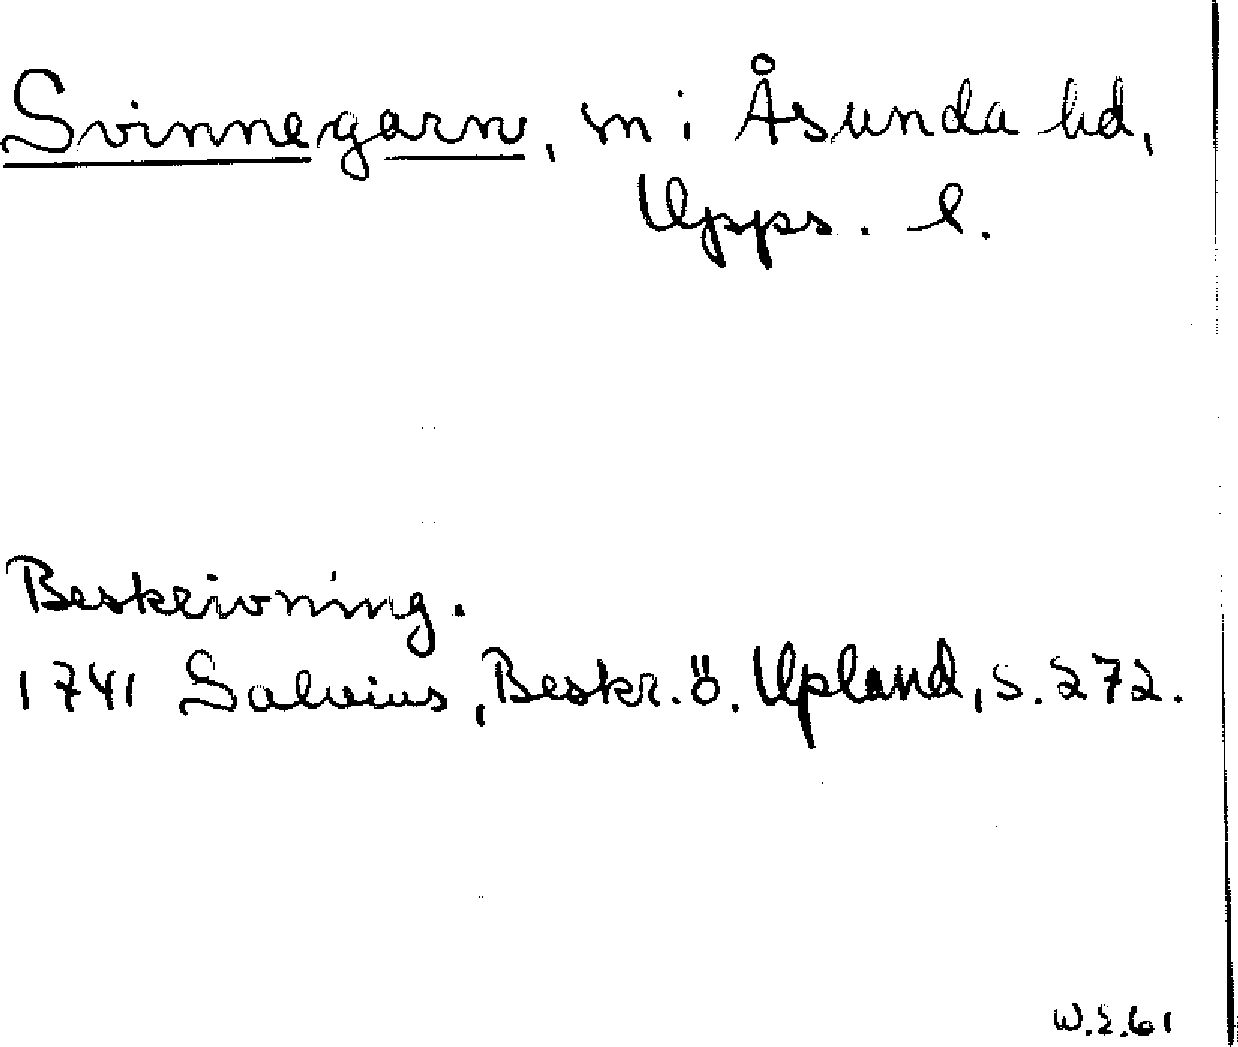 Svinnegarn, sn i Åsunda hd,
Upps. l.
Beskrivning.
1741 Salvius, Beskr. ö. Upland, s. 272.
W.S.61